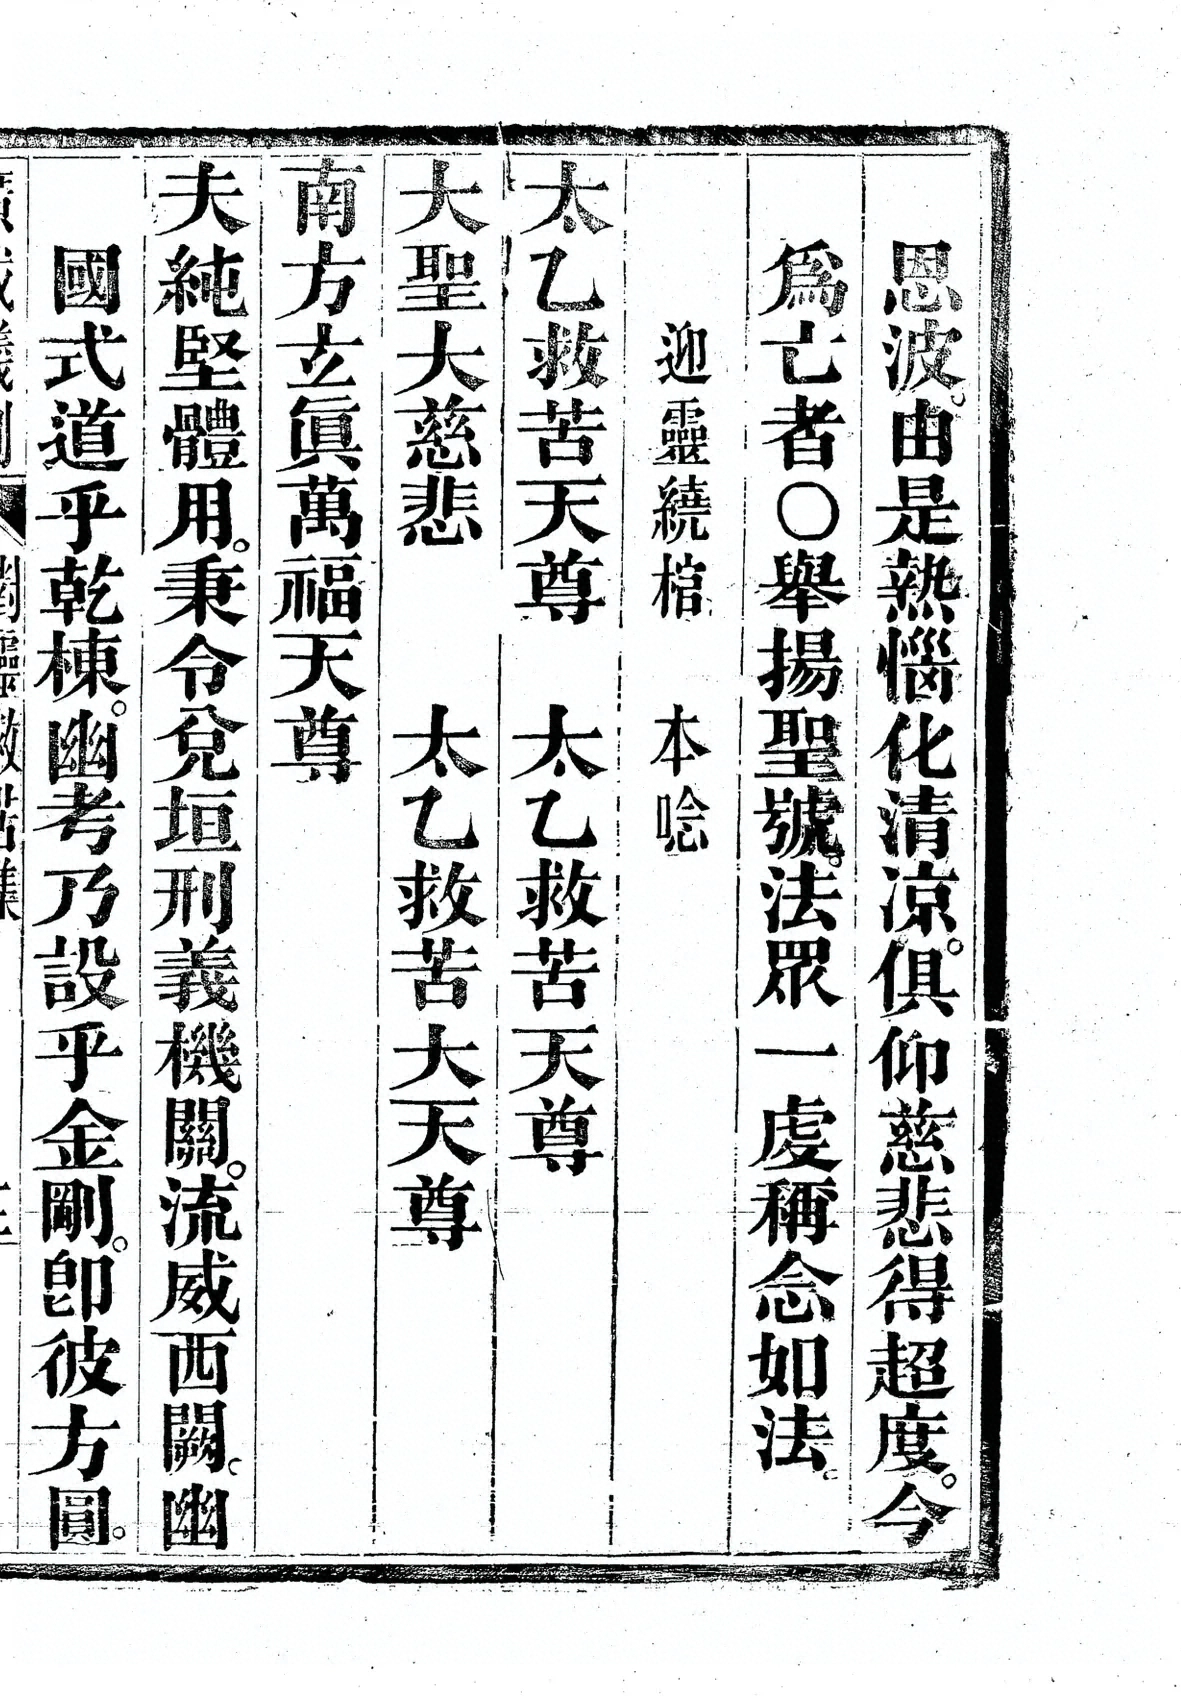 恩波。由是熱惱化清涼。俱仰慈悲得超度。今
為亡者〇舉揚聖號。法眾一處稱念如法。
迎靈繞棺 本唸
太乙救苦天尊 太乙救苦天尊
大聖大慈悲 太乙救苦大天尊
南方立眞萬福天尊
夫純堅體用。秉令兌垣刑義機關。流威西闕。幽
國式道乎乾棟。幽考乃設乎金剛。卽彼方圓。
廣成儀制